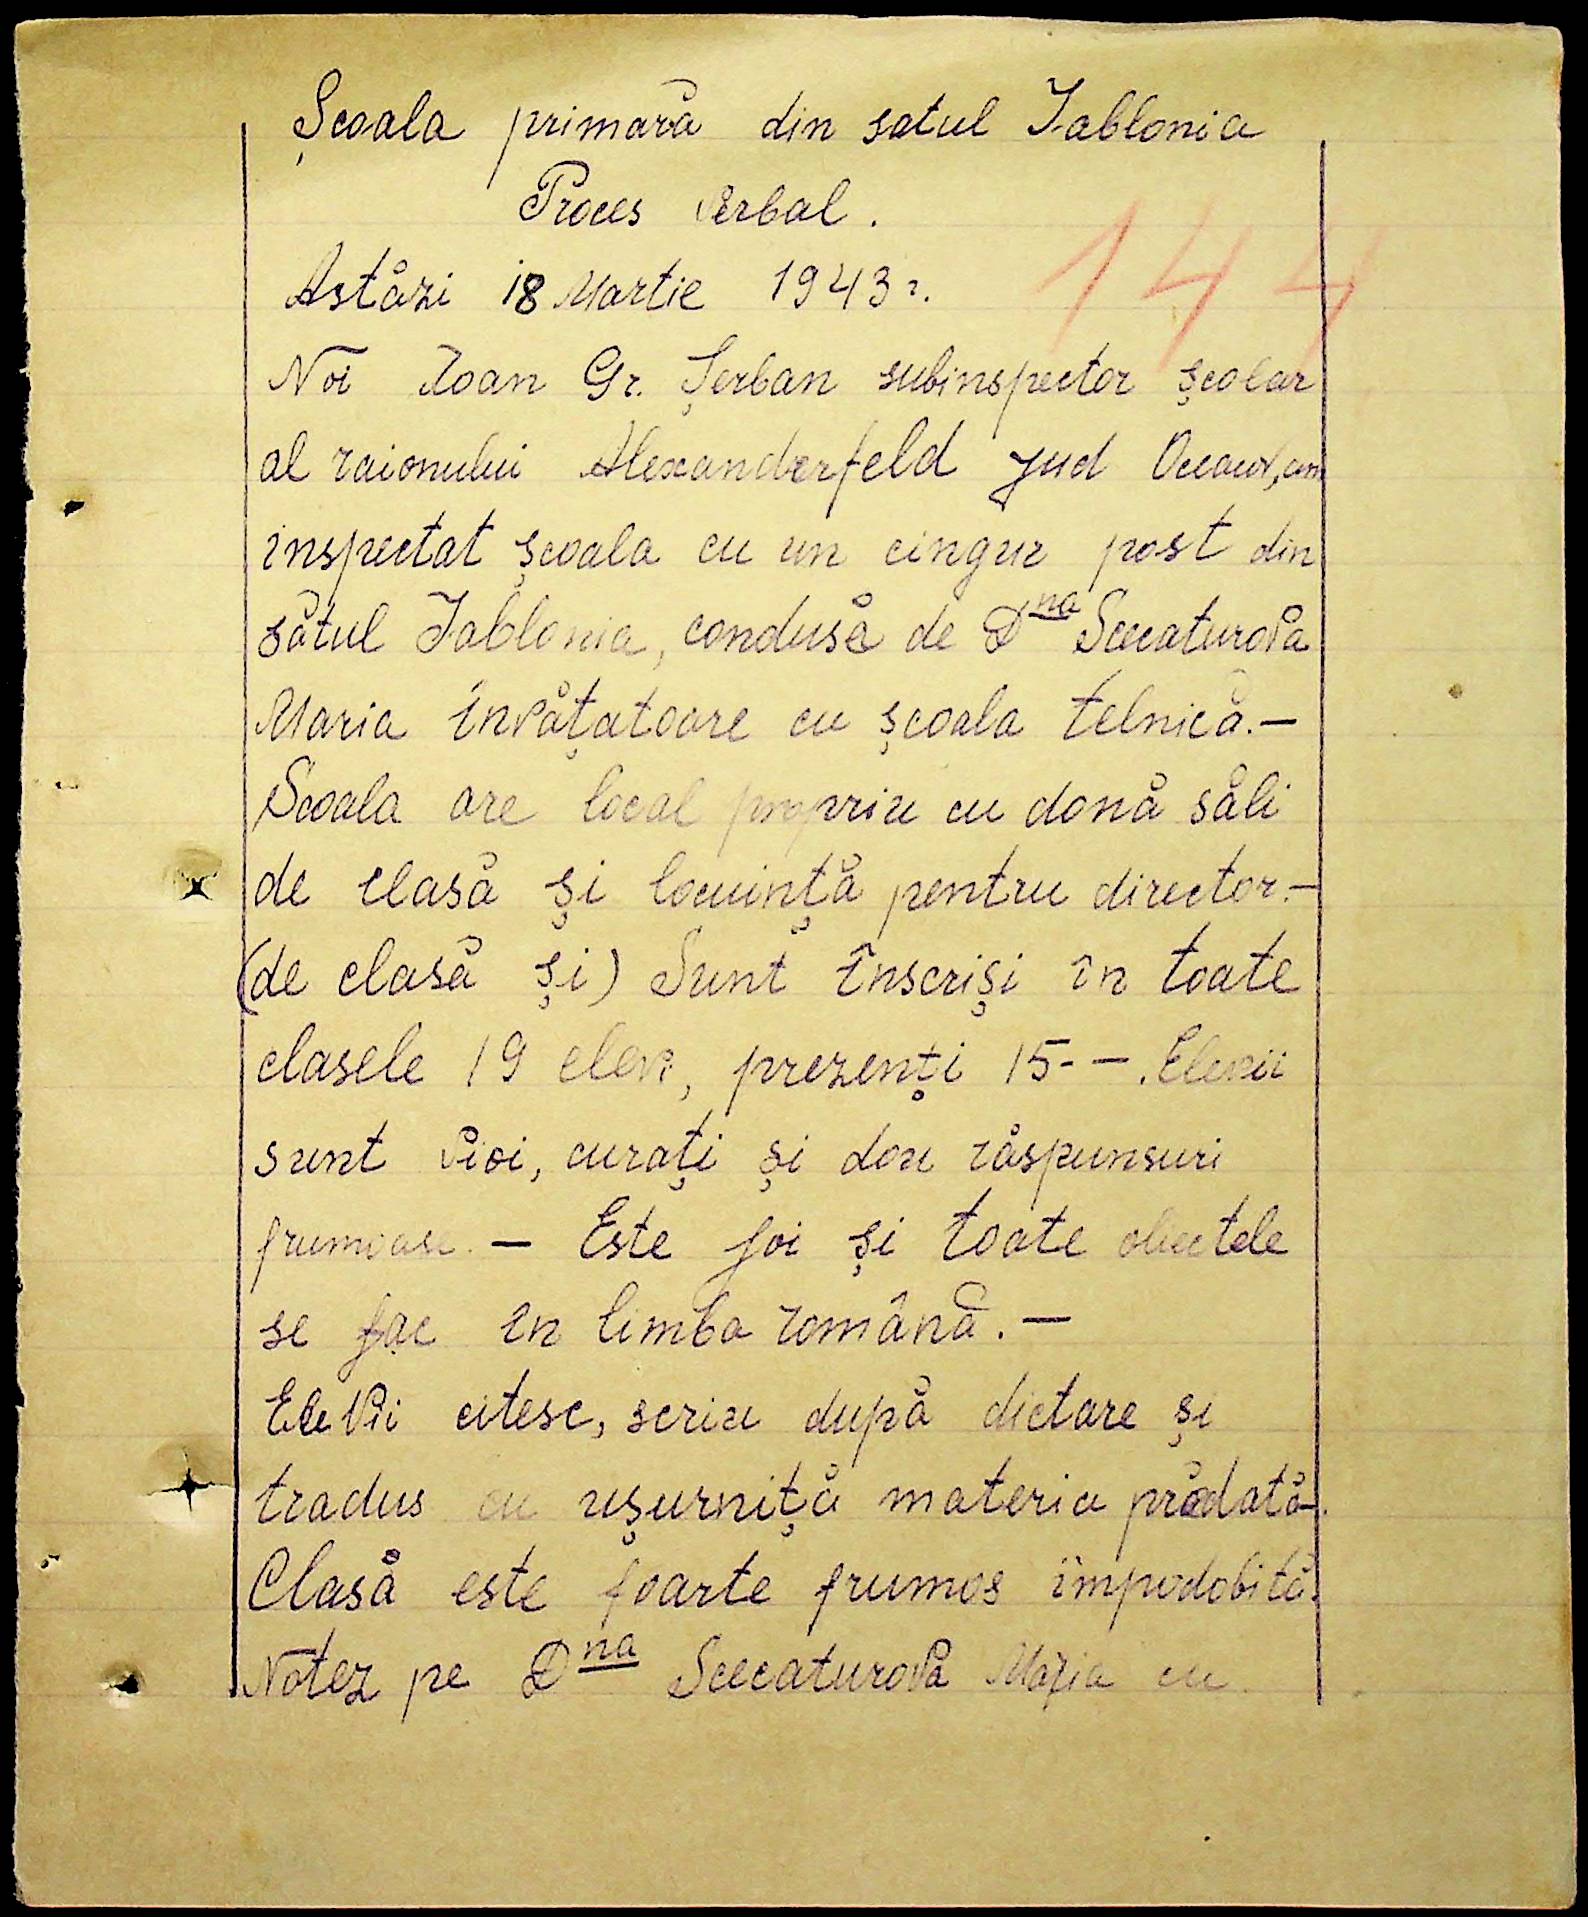 Școala primară din satul Iablonia
Proces verbal.
144
Astăzi 18 Martie 1943 г.
Noi Ioan Gr. Șerban subinspector școlar
al raionului Alexanderfeld jud Oceacov, am
inspectat școala cu un cingur post din
sătul Iablonia, condusă de Dna Scecaturova
Maria învățatoare cu școala telnică.—
Scoala are local propriu cu donă săli
de clasă și locuință pentru director.—
(de clasă și) Sunt înscriși în toate
clasele 19 elevi, prezenți 15-—. Elevii
sunt vioi, curați și dou răspunsuri
frumoase.— Este joi și toate obiectele
se fac în limba română.—
Elevii citesc, scriu după dictare și
tradus cu ușurniță materia prădată.
Clasă este foarte frumos împodobită.
Notez pe Dna Scecaturova Maria cu